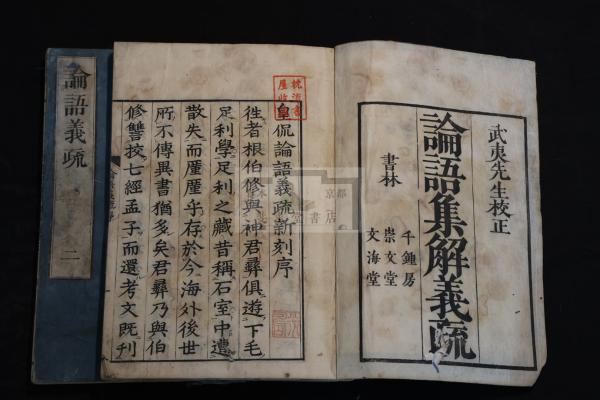 武夷先生校正
論語集解義疏
書林
千鍾房
崇文堂
文海堂
皇侃論語義疏新刻序
徃者根伯修與神君彞俱遊下毛
足利學足利之藏昔稱石室中遭
散失而厪厪乎存於今海外後世
所不傳異書猶多矣君彞乃與伯
修讐挍七經孟子而還考文既刊
論語義疏
二
京都
書店